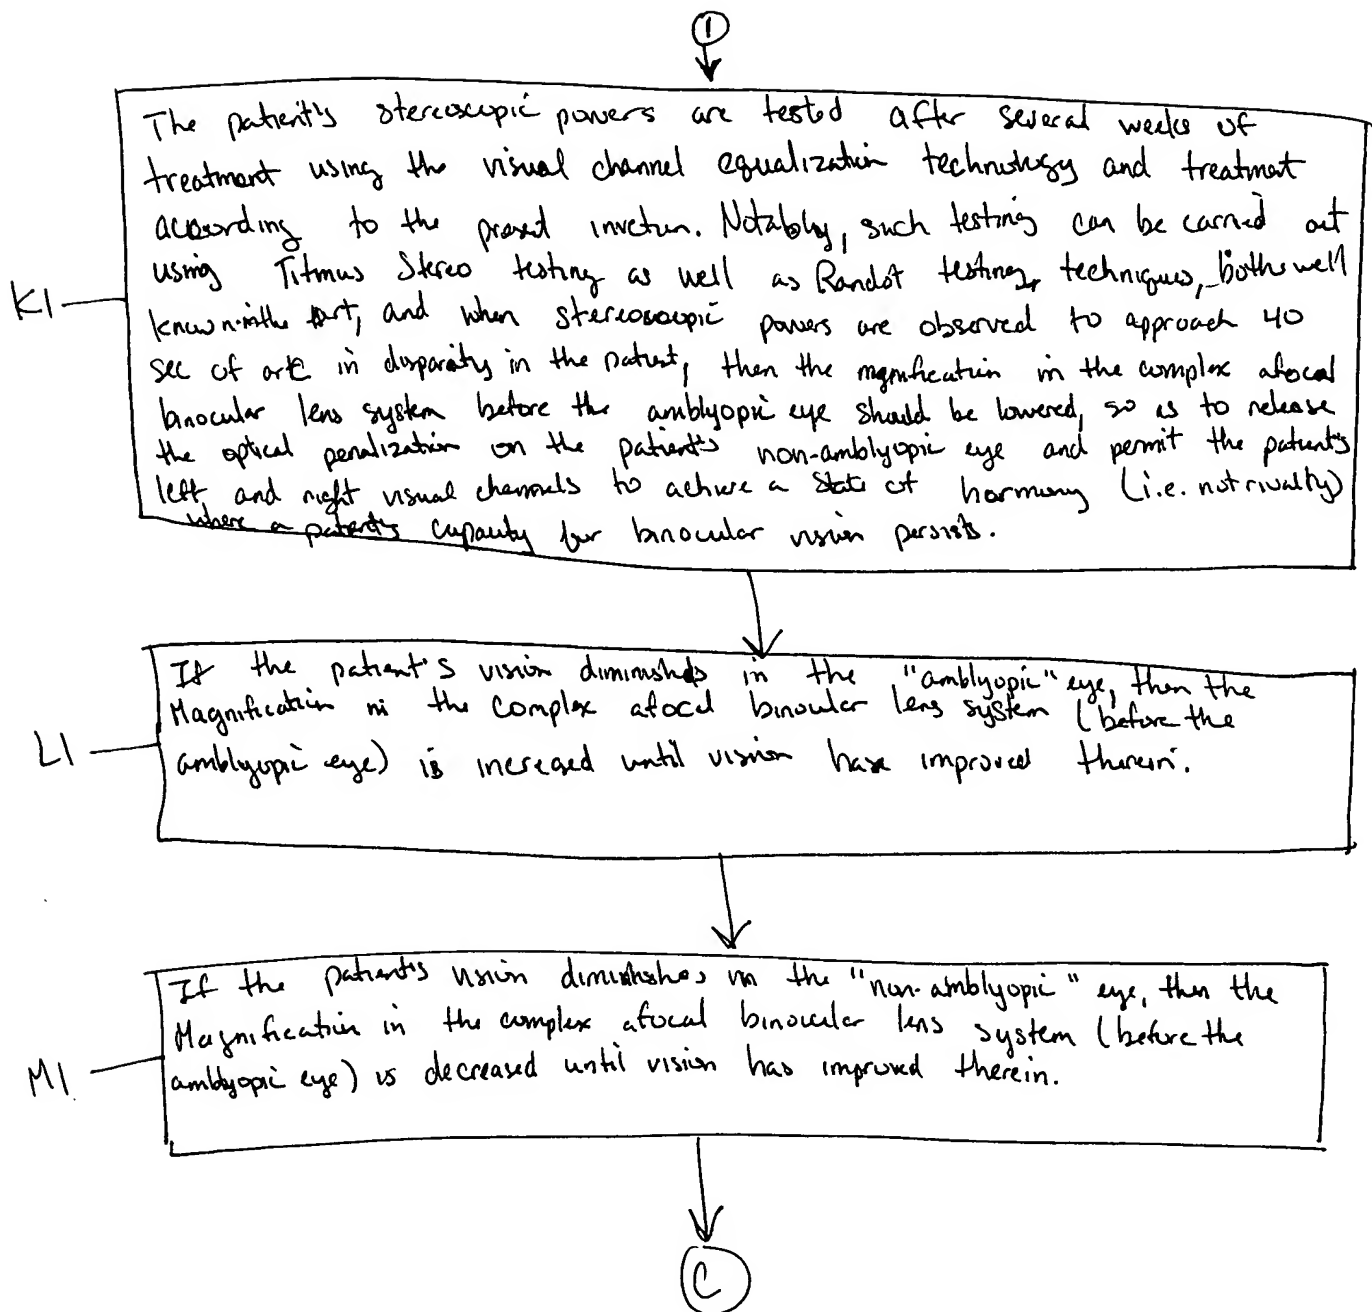 1
The patient's stereoscopic powers are tested after several weeks of
treatment using the visual channel equalization technology and treatment
according to the present invetion. Notably, such testing can be carried out
using Titmus Stereo testing as well as Randot testing, techniques, both well
known in the art, and when stereoscopic powers are observed to approach 40
sec of arc in disparity in the patient, then the magnification in the complex afocal
binocular lens system before the amblyopic eye should be lowered, so as to release
the optical penalization on the patient's non-amblyopic eye and permit the patient's
left and right visual channels to achieve a state of harmony (i.e. not rivalty)
where a patent's capacity for binocular vision persists.
K1
If the patient's vision diminishds in the "amblyopic" eye, then the
Magnification in the complex afocal binocular lens system (before the
amblyopic eye) is increased until vision hase improved therein.
L1
If the patient's vision diminishes in the "non-amblyopic" eye, then the
Magnification in the complex afocal binocular lens system (before the
amblyopic eye) is decreased until vision has improved therein.
M1
C